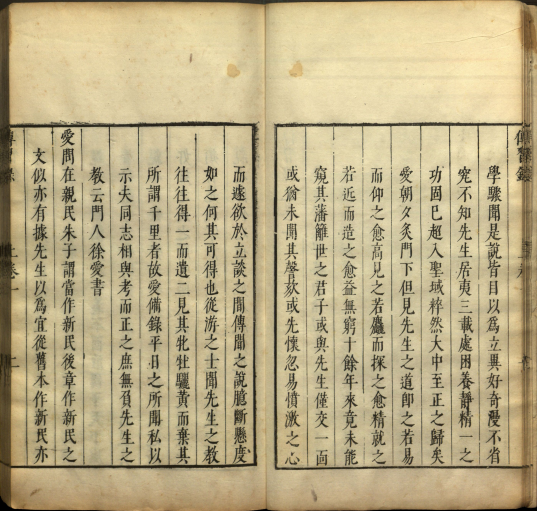 傳習錄
學驟聞是說皆目以為立異好奇漫不省
究不知先生居夷三載處困養靜精一之
功固已超入聖域粹然大中至正之歸矣
愛朝夕炙門下但見先生之道即之若易
而仰之愈高見之若麤而探之愈精就之
若近而造之愈益無窮十餘年來竟未能
窺其藩籬世之君子或與先生僅交一面
或猶未聞其謦欬或先懷忽易憤激之心
而遽欲於立談之間傳聞之說臆斷懸度
如之何其可得也從游之士聞先生之教
往往得一而遺二見其牝牡驪黃而棄其
所謂千里者故愛備錄平日之所聞私以
示夫同志相與考而正之庶無負先生之
教云門人徐愛書
愛問在親民朱子謂當作新民後章作新民之
文似亦有據先生以為宜從舊本作新民亦